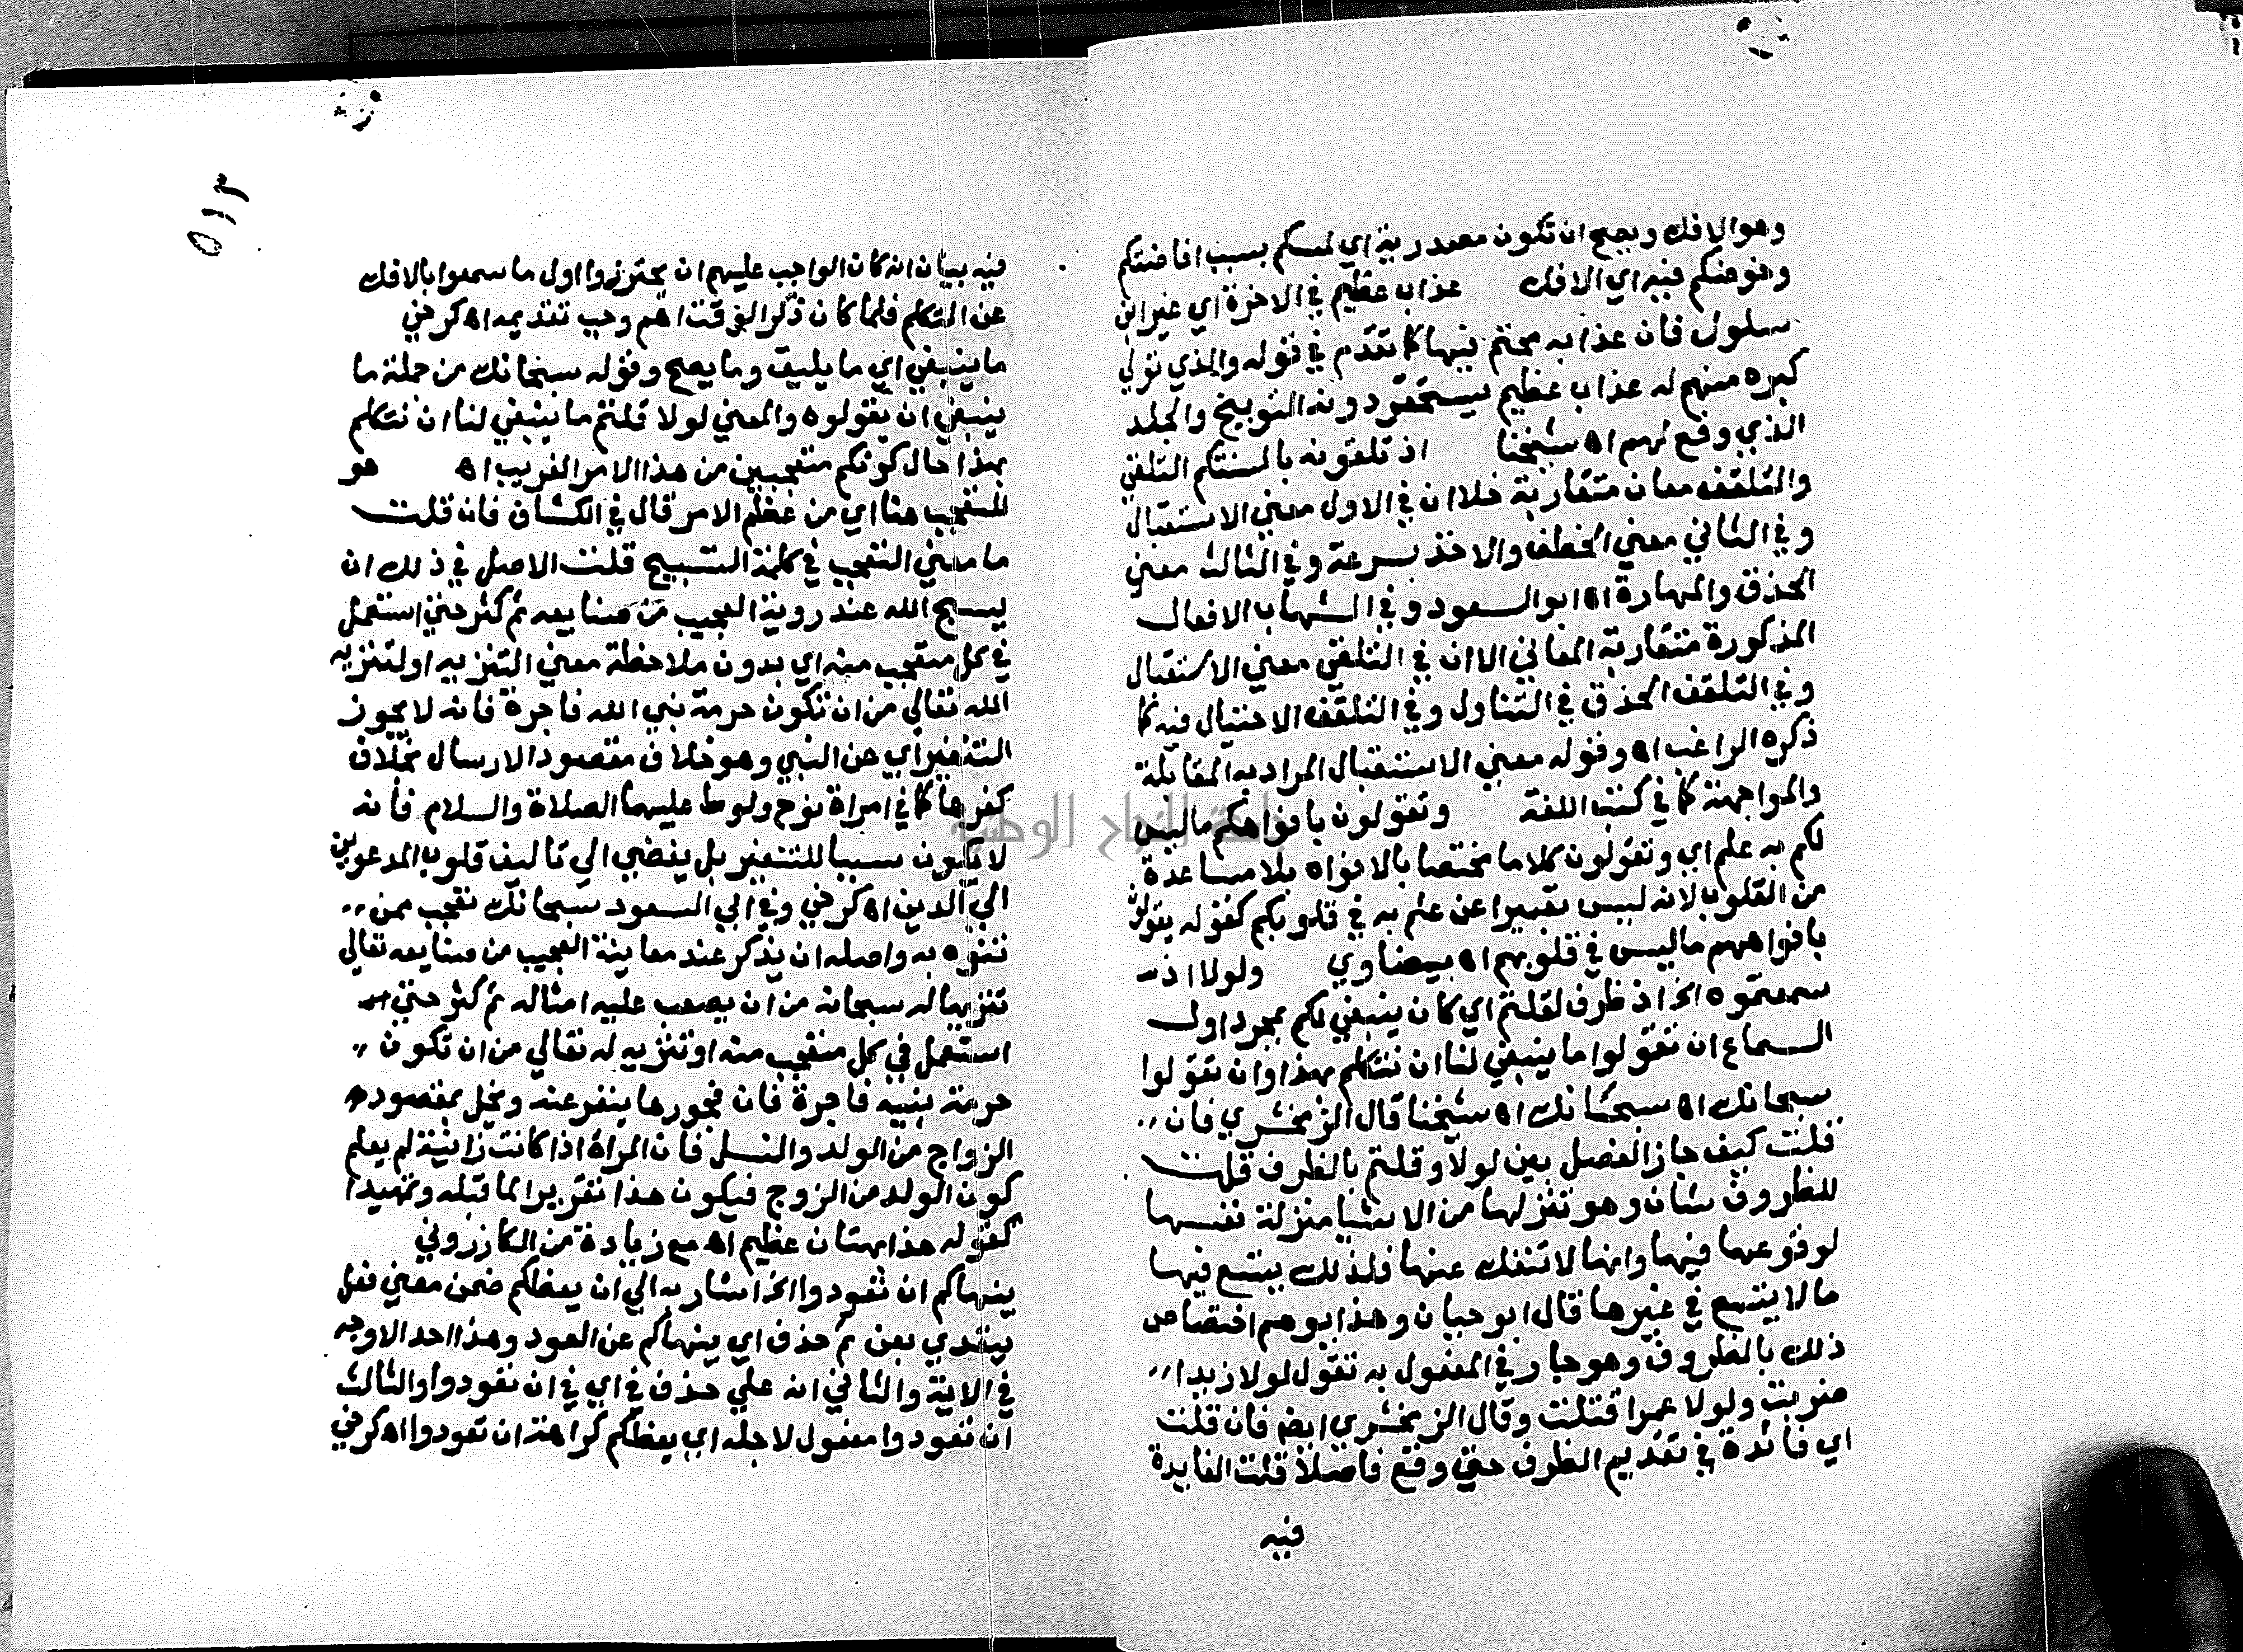 وهو الافك ويصح ان تكون مصدرية اي لمسكم بسبب افاضتكم
وخوضكم فيه اي الافك عذاب عظيم في الاخرة اي غير ابن
سلول فان عذابه محتم فيها كما تقدم في قوله والذي تولي
كبره منهم له عذاب عظيم يستحقر دونه التوبيخ والجلد
الذي وقع لهم اه شيخنا اذ تلقونه بالسنتكم التلقي
والتلقف معان متقاربة خلا ان في الاول معني الاستقبال
وفي الثاني معني الخطف والاخذ بسرعة وفي الثالث معني
الحذق والمهارة اه ابو السعود وفي الشهاب الافعال
المذكورة متقاربة المعاني الا ان في التلقي معني الاستقبال
وفي التلقف الحذق في التناول وفي التلقف الاحتيال فيه كما
ذكره الراغب اه وقوله معني الاستقبال المراد به المقابلة
والمواجهة كما في كتب اللغة وتقولون بافواهكم ما ليس
لكم به علم اي وتقولون كلاما مختصا بالافواه بلا مساعدة
من القلوب لانه ليس تعبيرا عن علم به في قلوبكم كقوله يقولون
بافواههم ما ليس في قلوبهم اه بيضاوي ولولا اذ
سمعتموه الخ اذ ظرف لقلتم اي كان ينبغي لكم بمجرد اول
السماع ان تقولوا ما ينبغي لنا ان نتكلم بهذا وان تقولوا
سبحانك اه سبحانك اه شيخنا قال الزمخشري فان
قلت كيف جاز الفصل بين لولا وقلتم بالظرف قلت
للظروف شان وهو تنزلها من الاشيا منزلة نفسها
لوقوعها فيها وانها لا تنفك عنها فلذلك يتسع فيها
ما لا يتسع في غيرها قال ابو حيان وهذا يوهم اختصاص
ذلك بالظروف وهو جار في المفعول به تقول لولا زيدا
ضربت ولولا عمرا قتلت وقال الزمخشري ايضا فان قلت
اي فائدة في تقديم الظرف حتي وقع فاصلا قلت الفايدة
فيه
٥١٣
فيه بيان انه كان الواجب عليهم ان يحترزوا اول ما سمعوا بالافك
عن التكلم فلما كان ذكر الوقت اهم وجب تقديمه اه كرخي
ما ينبغي اي ما يليق وما يصح وقوله سبحانك من جملة ما
ينبغي ان يقولوه والمعني لولا قلتم ما ينبغي لنا ان نتكلم
بهذا حال كونكم متعجبين من هذا الامر الغريب اه هو
للتعجب هنا اي من عظم الامر قال في الكشاف فان قلت
ما معني التعجب في كلمة التسبيح قلت الاصل في ذلك ان
يسبح الله عند روية العجيب من صنايعه ثم كثر حتي استعمل
في كل متعجب منه اي بدون ملاحظة معني التنزيه او لتنزيه
الله تعالي من ان تكون حرمة نبي الله فاجرة فانه لا يجوز
التنفير اي عن النبي وهو خلاف مقصود الارسال بخلاف
كفرها كما في امراة نوح ولوط عليهما الصلاة والسلام فأنه
لا يكون سببا للتنفير بل يفضي الي تاليف قلوب المدعوين
الي الدين اه كرخي وفي ابي السعود سبحانك تعجب ممن
تفوه به واصله ان يذكر عند معاينة العجيب من صنايعه تعالي
تنزيها له سبحانه من ان يصعب عليه امثاله ثم كثر حتي
استعمل في كل متعجب منه او تنزيه له تعالي من ان تكون
حرمة نبيه فاجرة فان فجورها ينفر عنه ويخل بمقصود
الزواج من الولد والنسل فان المراة اذا كانت زانية لم يعلم
كون الولد من الزوج فيكون هذا تقريرا لما قبله وتمهيدا
كقوله هذا بهتان عظيم اه مع زيادة من الكازروني
ينهاكم ان تعودوا الخ اشار به الي ان يعظكم ضمن معني فعل
يتعدي بعن ثم حذف اي ينهاكم عن العود وهذا احد الاوجه
في الاية والثاني انه علي حذف في اي في ان تعودوا والثالث
ان تعودوا مفعول لاجله اي يعظكم كراهة ان تعودوا اه كرخي